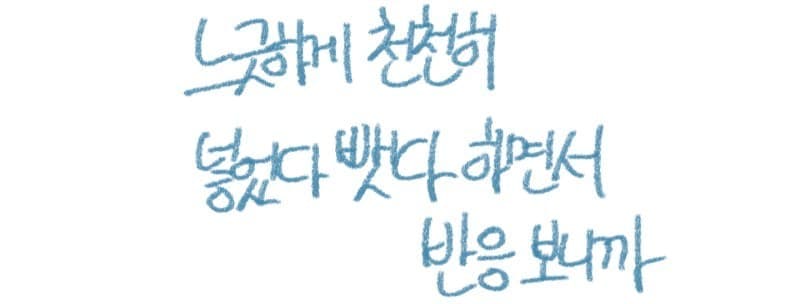 느긋하게 천천히
넣었다 뺏다 하면서
반응 보니까